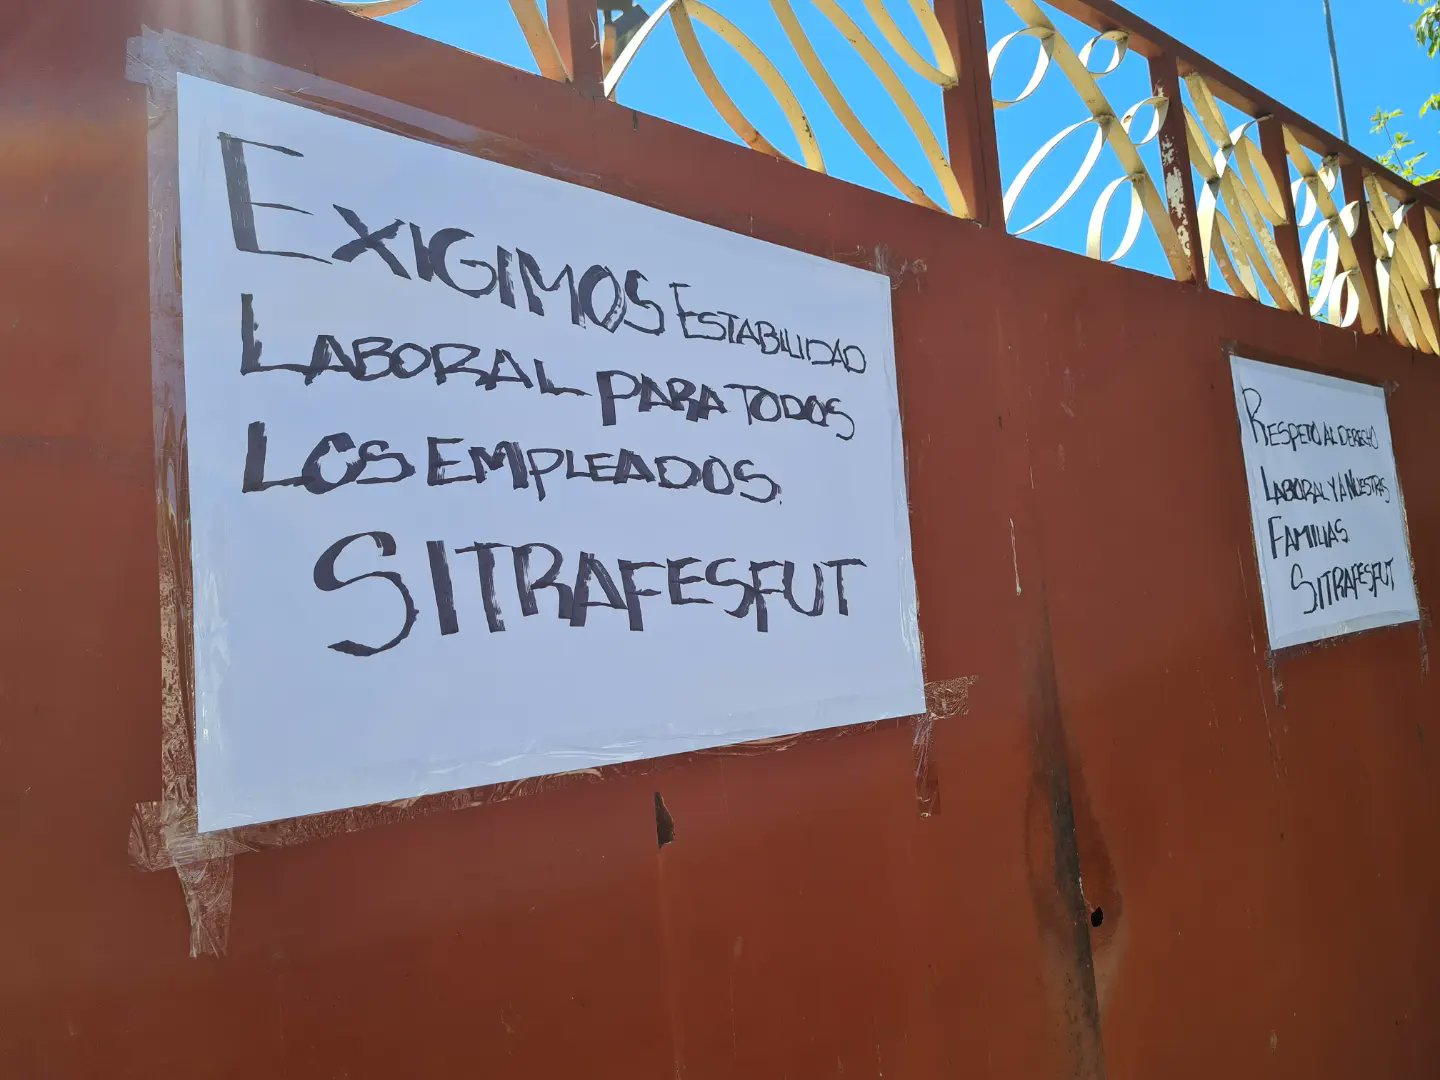 EXIGIMOS ESTABILIDAD
LABORAL PARA TODOS
LOS EMPLEADOS.
SITRAFESFUT
RESPETO AL DERECHO
LABORAL Y A NUESTRAS
FAMILIAS
SITRAFESFUT